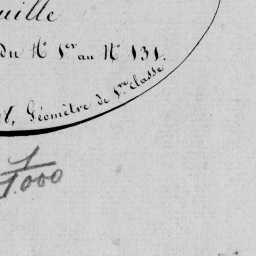 uille
du N° 1er au N° 131.
t, Géomètre de 1re classe
1/1.000